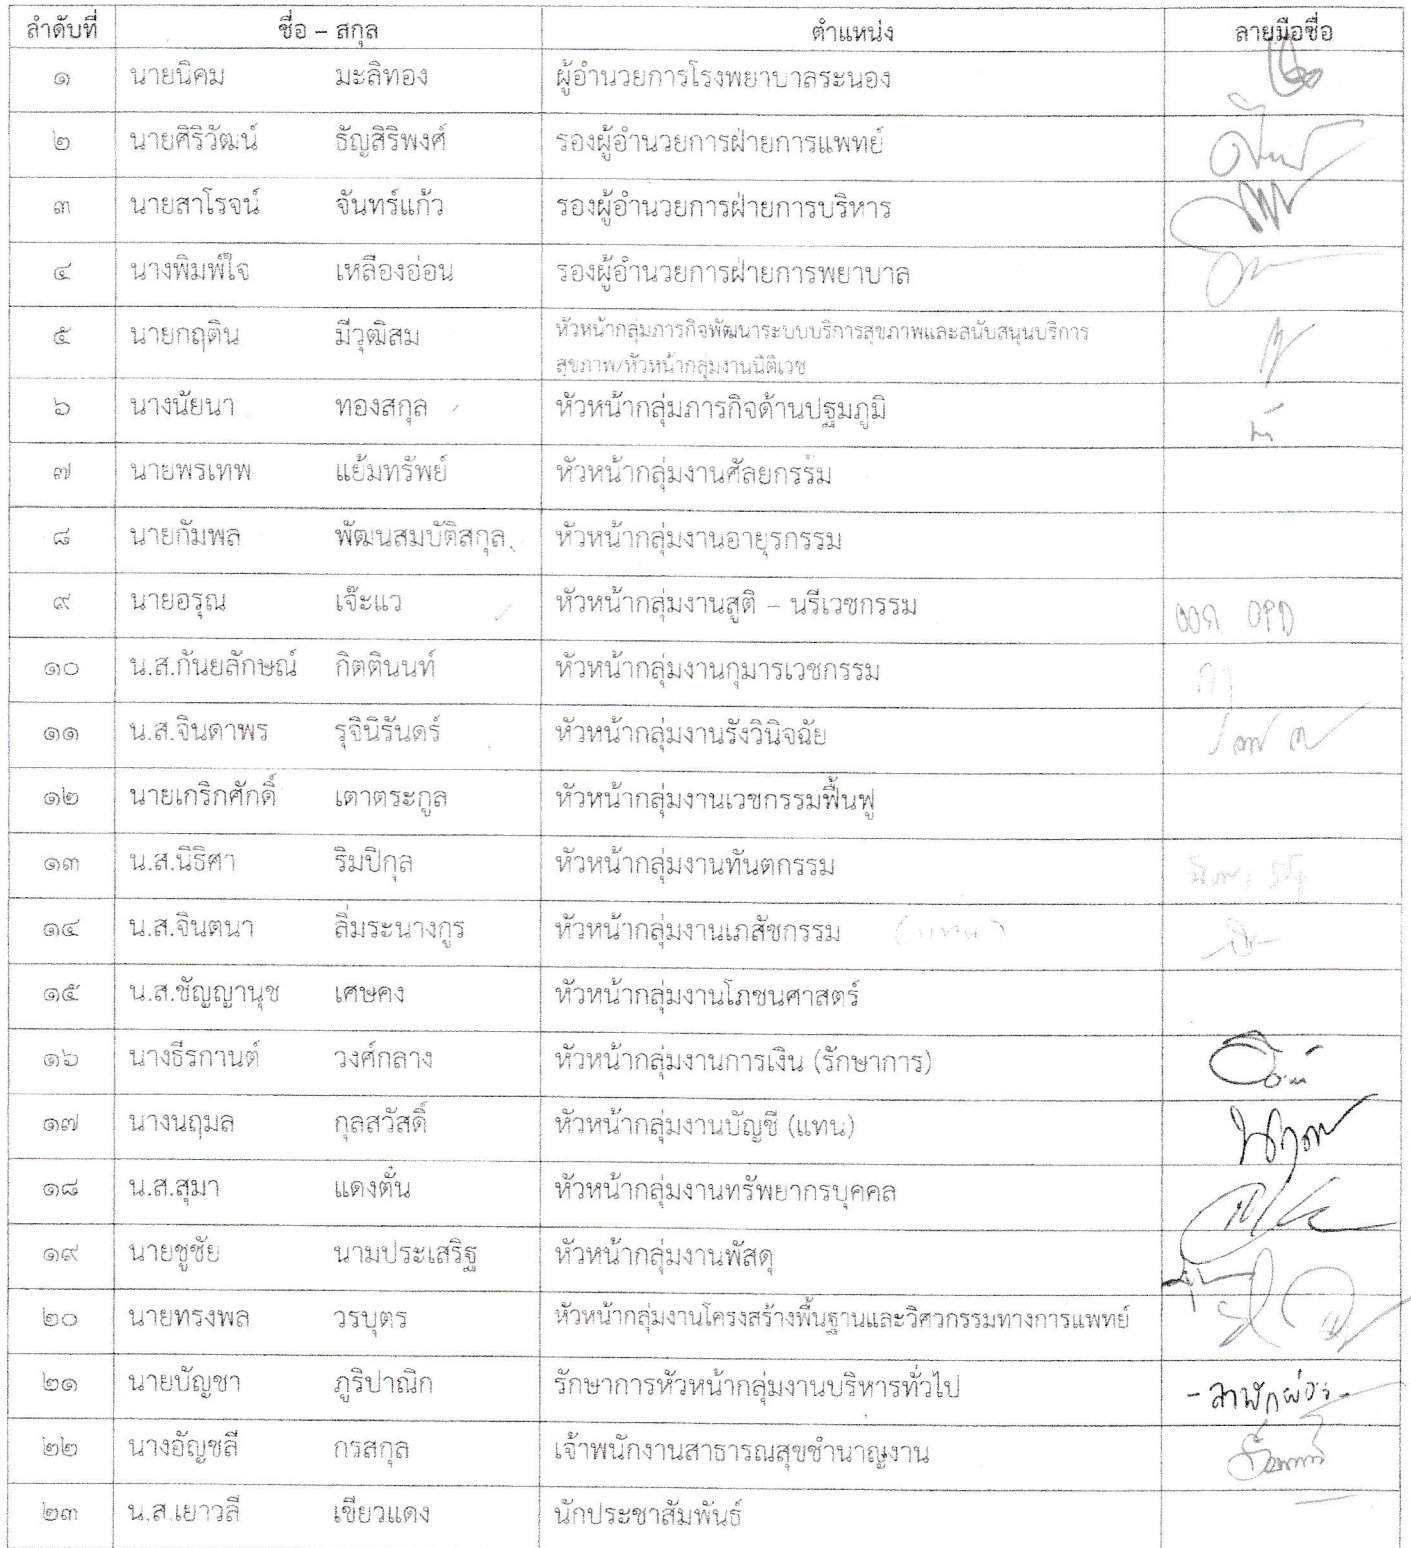 ลำดับที่ ชื่อ – สกุล ตำแหน่ง ลายมือชื่อ
๑ นายนิคม มะลิทอง ผู้อำนวยการโรงพยาบาลระนอง
๒ นายศิริวัฒน์ ธัญสิริพงศ์ รองผู้อำนวยการฝ่ายการแพทย์
๓ นายสาโรจน์ จันทร์แก้ว รองผู้อำนวยการฝ่ายการบริหาร
๔ นางพิมพ์ใจ เหลืองอ่อน รองผู้อำนวยการฝ่ายการพยาบาล
๕ นายกฤติน มีวุฒิสม หัวหน้ากลุ่มภารกิจพัฒนาระบบบริการสุขภาพและสนับสนุนบริการ
สุขภาพ/หัวหน้ากลุ่มงานนิติเวช
๖ นางนัยนา ทองสกุล หัวหน้ากลุ่มภารกิจด้านปฐมภูมิ
๗ นายพรเทพ แย้มทรัพย์ หัวหน้ากลุ่มงานศัลยกรรม
๘ นายกัมพล พัฒนสมบัติสกุล หัวหน้ากลุ่มงานอายุรกรรม
๙ นายอรุณ เจ๊ะแว หัวหน้ากลุ่มงานสูติ – นรีเวชกรรม ออก OPD
๑๐ น.ส.กันยลักษณ์ กิตตินนท์ หัวหน้ากลุ่มงานกุมารเวชกรรม
๑๑ น.ส.จินดาพร รุจินิรันดร์ หัวหน้ากลุ่มงานรังวินิจฉัย
๑๒ นายเกริกศักดิ์ เตาตระกูล หัวหน้ากลุ่มงานเวชกรรมฟื้นฟู
๑๓ น.ส.นิธิศา ริมปิกุล หัวหน้ากลุ่มงานทันตกรรม
๑๔ น.ส.จินตนา ลิ่มระนางกูร หัวหน้ากลุ่มงานเภสัชกรรม
๑๕ น.ส.ชัญญานุช เศษคง หัวหน้ากลุ่มงานโภชนศาสตร์
๑๖ นางธีรกานต์ วงศ์กลาง หัวหน้ากลุ่มงานการเงิน (รักษาการ)
๑๗ นางนฤมล กุลสวัสดิ์ หัวหน้ากลุ่มงานบัญชี (แทน)
๑๘ น.ส.สุมา แดงตั๋น หัวหน้ากลุ่มงานทรัพยากรบุคคล
๑๙ นายชูชัย นามประเสริฐ หัวหน้ากลุ่มงานพัสดุ
๒๐ นายทรงพล วรบุตร หัวหน้ากลุ่มงานโครงสร้างพื้นฐานและวิศวกรรมทางการแพทย์
๒๑ นายบัญชา ภูริปาณิก รักษาการหัวหน้ากลุ่มงานบริหารทั่วไป - ลาพักผ่อน -
๒๒ นางอัญชลี กรสกุล เจ้าพนักงานสาธารณสุขชำนาญงาน
๒๓ น.ส.เยาวลี เขียวแดง นักประชาสัมพันธ์